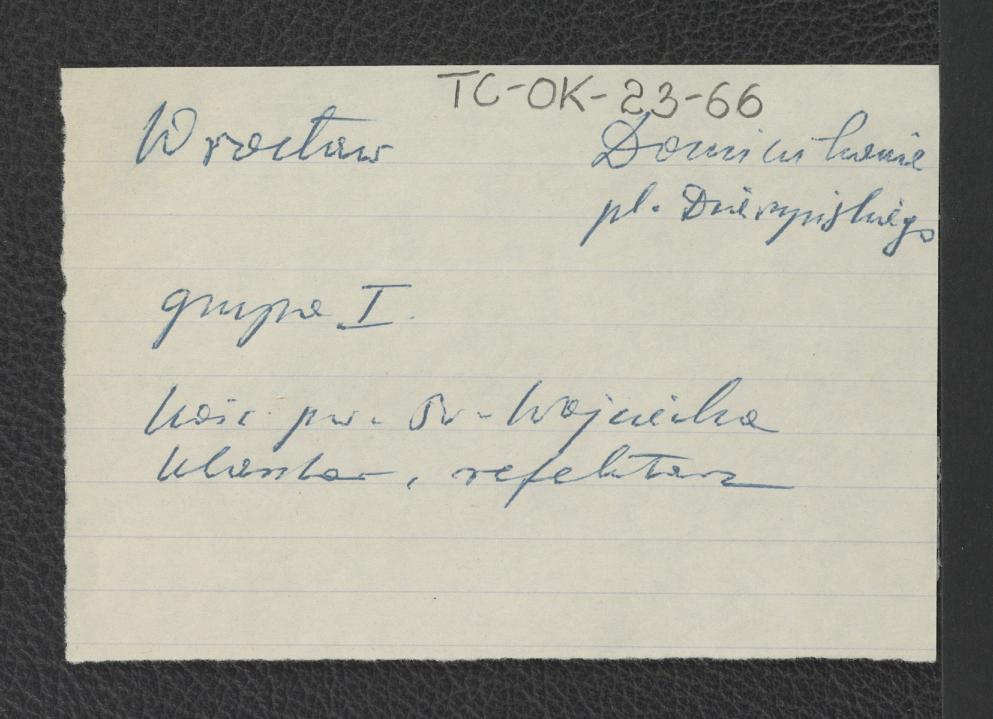 TC-OK-23-66
Wrocław Dominikanie
pl. Dzierżyńskiego
grupa I.
kość. pw. św. Wojciecha
klasztor, refektarz